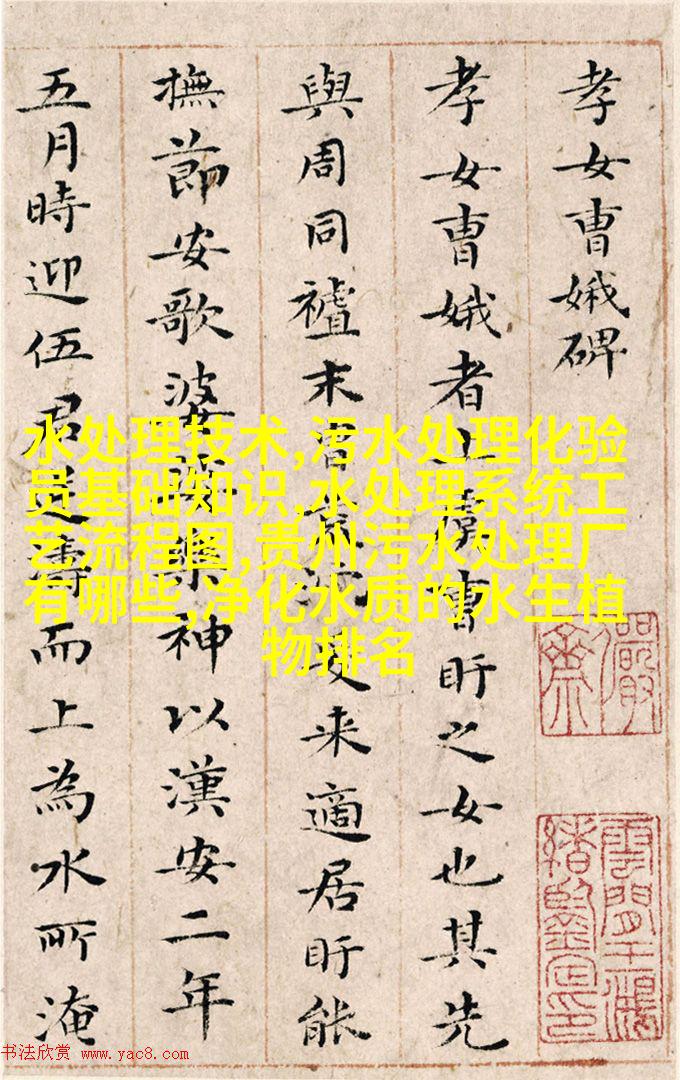 孝女曹娥碑
孝女曹娥者上虞曹盱之女也其先
與周同末胄荒沉爰来適居盱能
撫節安歌婆娑樂神以漢安二年
五月時迎伍君逆濤而上為水所淹
水处理技术,污水处理化验
员基础知识,水处理系统工
艺流程图,贵州污水处理厂
有哪些,净化水质的水生植
物排名
儼齋
雲間王鴻緒鑒定印
书法欣赏 www.yac8.com